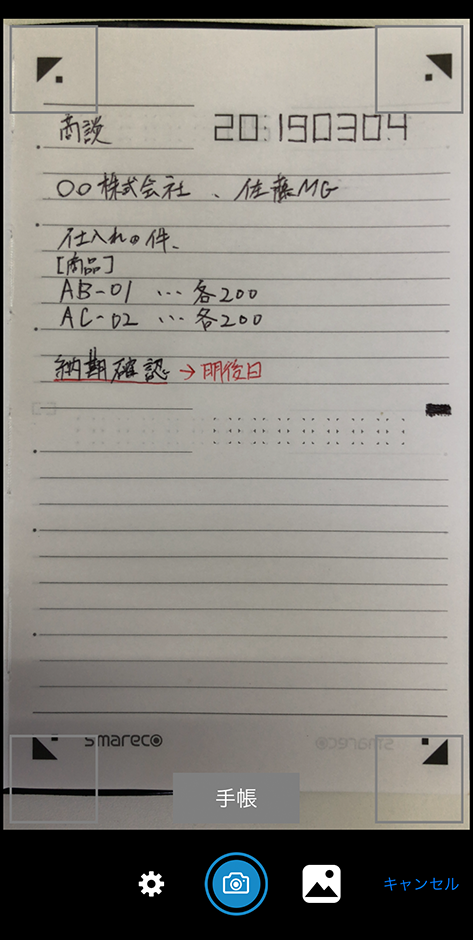 商談 20:190304
〇〇株式会社、佐藤MG
仕入れの件、
[商品]
AB-01 … 各200
AC-02 … 各200
納期確認→明後日
smareco
smareco
手帳
キャンセル